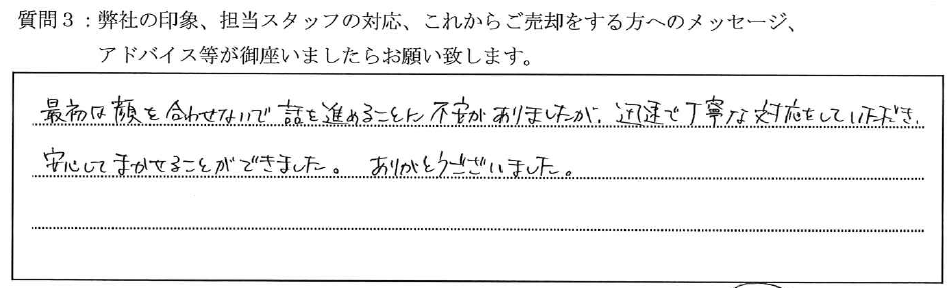 質問3：弊社の印象、担当スタッフの対応、これからご売却をする方へのメッセージ、
アドバイス等が御座いましたらお願い致します。
最初は顔を合わせないで話を進めることに不安がありましたが、迅速で丁寧な対応をしていただき、
安心してまかせることができました。ありがとうございました。